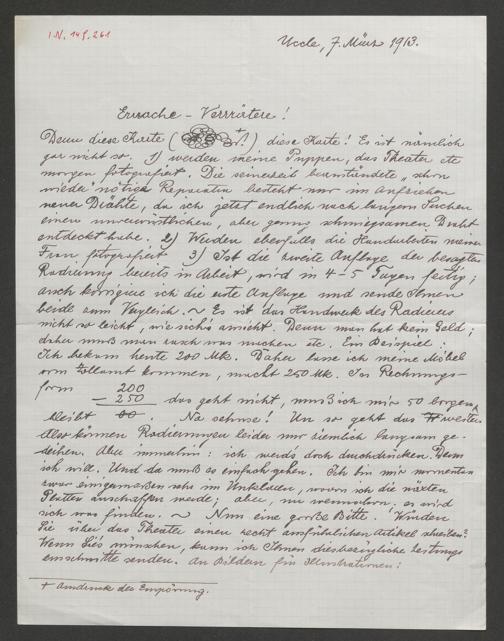 I.N. 149.261
Uccle, 7. März 1913.
Ersache-Verrrätere!
Denn diese Karte ( +!) diese Karte! Es ist nämlich
gar nicht so. 1) werden meine Puppen, das Theater etc
morgen fotografiert. Die seinerzeit beanständete „schon
wieder" nötige Reparatur besteht nur im Aufziehen
neuer Drähte, da ich jetzt endlich nach langem Suchen
einen unverwüstlichen, aber genug schmiegsamen Draht
entdeckt habe. 2) Werden ebenfalls die Handarbeiten meiner
Frau fotografiert 3) Ist die zweite Auflage der besagten
Radierung bereits in Arbeit, wird in 4-5 Tagen fertig;
auch korrigiere ich die erste Auflage und sende Ihnen
beide zum Vergleich. ~ Es ist das Handwerk des Radierers
nicht so leicht, wie sich's ansieht. Denn man hat kein Geld;
daher muß man auch was machen etc. Ein Beispiel:
Ich bekam heute 200 Mk. Daher lasse ich meine Möbel
vom Zollamt kommen, macht 250 Mk. In Rechnungs-
form 200
- 250 das geht nicht, muß ich mir 50 borgen,
bleibt 00. Na sehnse! Un so geht das weiter.
Also können Radierungen leider nur ziemlich langsam ge-
deihen. Aber immerhin: ich werds doch durchdrücken. Denn
ich will. Und da muß es einfach gehen. Ich bin mir momentan
zwar einigermaßen sehr im Unklaren, wovon ich die näxten
Platten anschaffen werde; aber, nu wennschon, es wird
sich was finden. ~ Nun eine große Bitte. Würden
Sie über das Theater einen recht ausführlichen Artikel schreiben?
Wenn Sie's wünschen, kann ich Ihnen diesbezügliche Zeitungs-
ausschnitte senden. An Bildern für Illustrationen:
+ Ausdruck der Empörung.